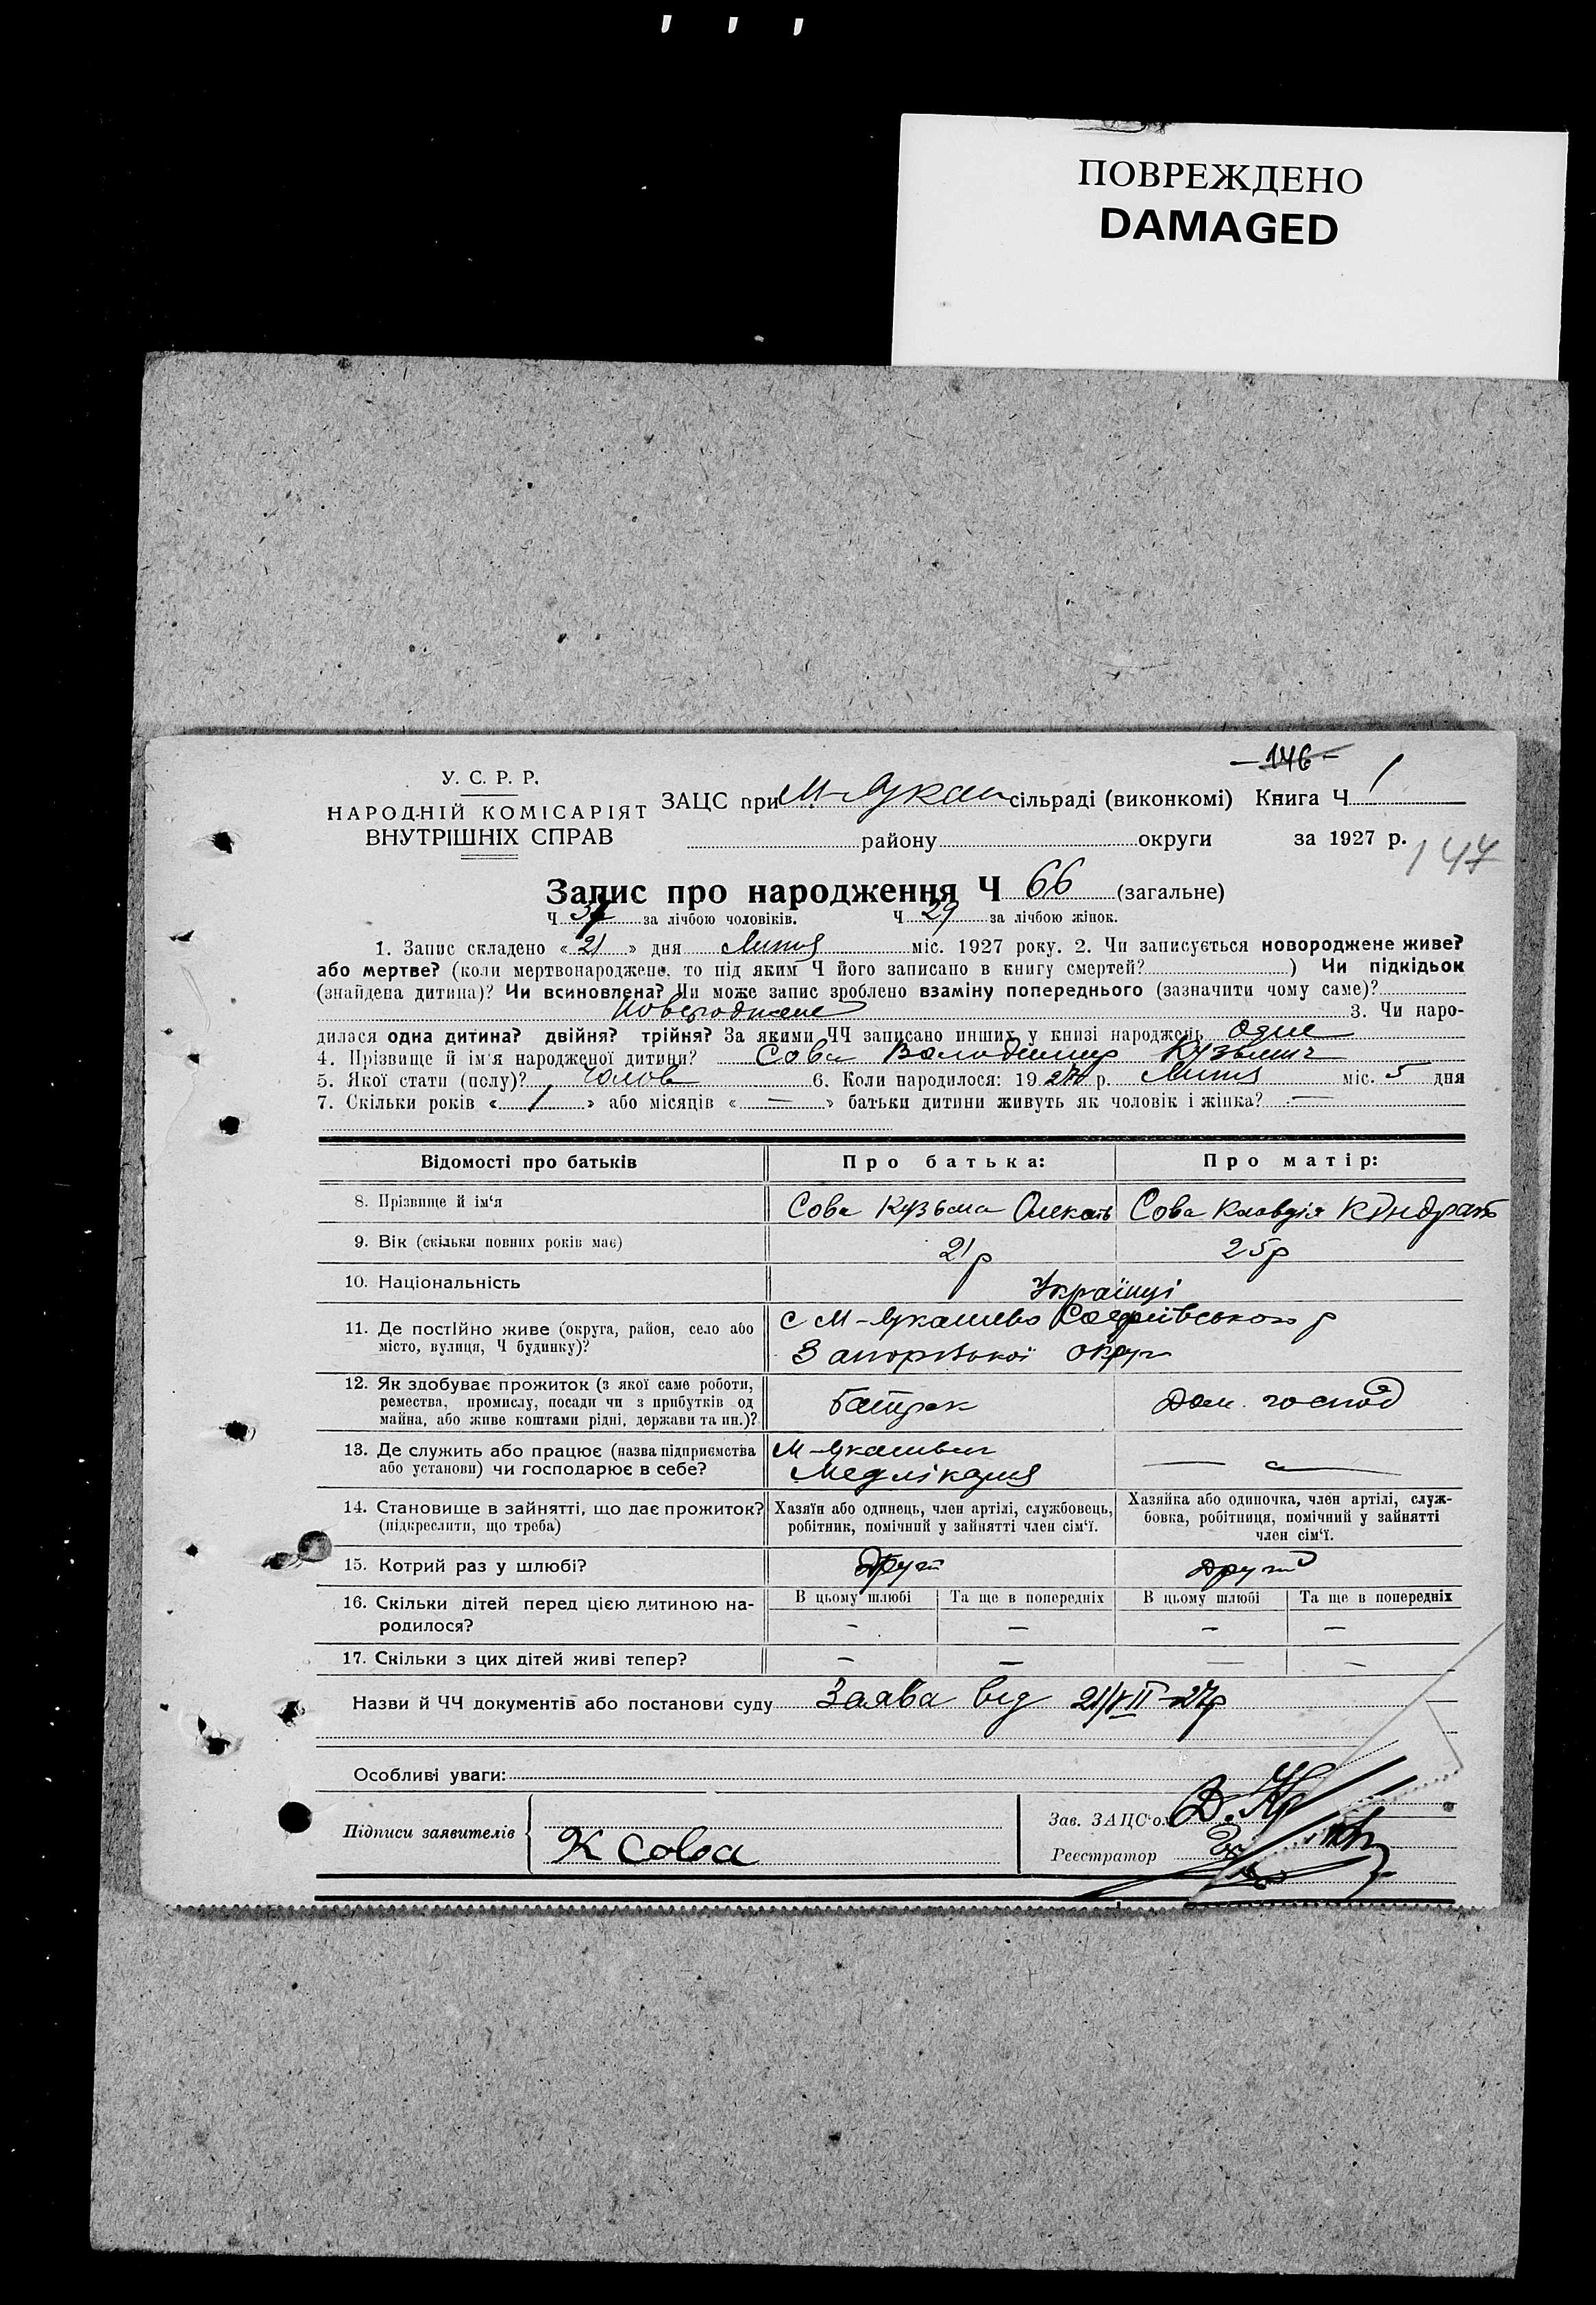 ПОВРЕЖДЕНО
DAMAGED
— 146 —
У. С. Р. Р.
НАРОДНІЙ КОМІСАРІЯТ
ВНУТРІШНІХ СПРАВ
ЗАЦС при М-Лукаш сільраді (виконкомі) Книга Ч 1
району округи за 1927 р.
147
Запис про народження Ч 66 (загальне)
Ч 37 за лічбою чоловіків. Ч 29 за лічбою жінок.
1. Запис складено « 21 » дня Липня міс. 1927 року. 2. Чи записується новороджене живе?
або мертве? (коли мертвонароджене, то під яким Ч його записано в книгу смертей? ) Чи підкідьок
(знайдена дитина)? Чи всиновлена? Чи може запис зроблено взаміну попереднього (зазначити чому саме)?
Новороджене 3. Чи наро-
дилася одна дитина? двійня? трійня? За якими ЧЧ записано инших у книзі народжень Одне
4. Прізвище й ім'я народженої дитини? Сова Володимир Кузьмич
5. Якої стати (полу)? Чолов 6. Коли народилося: 1927 р. Липня міс. 5 дня
7. Скільки років « 1 » або місяців « — » батьки дитини живуть як чоловік і жінка? —
Відомості про батьків Про батька: Про матір:
8. Прізвище й ім'я Сова Кузьма Сова Клавдія Кіндрат
9. Вік (скільки повних років має) 21 р 25 р
10. Національність Українці
11. Де постійно живе (округа, район, село або
місто, вулиця, Ч будинку)?
с М-Лукашево Софіївського р
Запорізької округи
12. Як здобуває прожиток (з якої саме роботи,
ремества, промислу, посади чи з прибутків од
майна, або живе коштами рідні, держави та ин.)?
Батрак Дом. господ
13. Де служить або працює (назва підприємства
або установи) чи господарює в себе?
М-Лукашевск
Медлікарня —
14. Становище в зайнятті, що дає прожиток?
(підкреслити, що треба)
Хазяїн або одинець, член артілі, службовець,
робітник, помічний у зайнятті член сім'ї.
Хазяйка або одиночка, член артілі, служ-
бовка, робітниця, помічний у зайнятті
член сім'ї.
15. Котрий раз у шлюбі? Другий Другий
16. Скільки дітей перед цією дитиною на-
родилося?
В цьому шлюбі Та ще в попередніх В цьому шлюбі Та ще в попередніх
— — — —
17. Скільки з цих дітей живі тепер? — — — —
Назви й ЧЧ документів або постанови суду Заява від 21/VII-27р
Особливі уваги:
Підписи заявителів К Сова
Зав. ЗАЦС'ом
Реєстратор